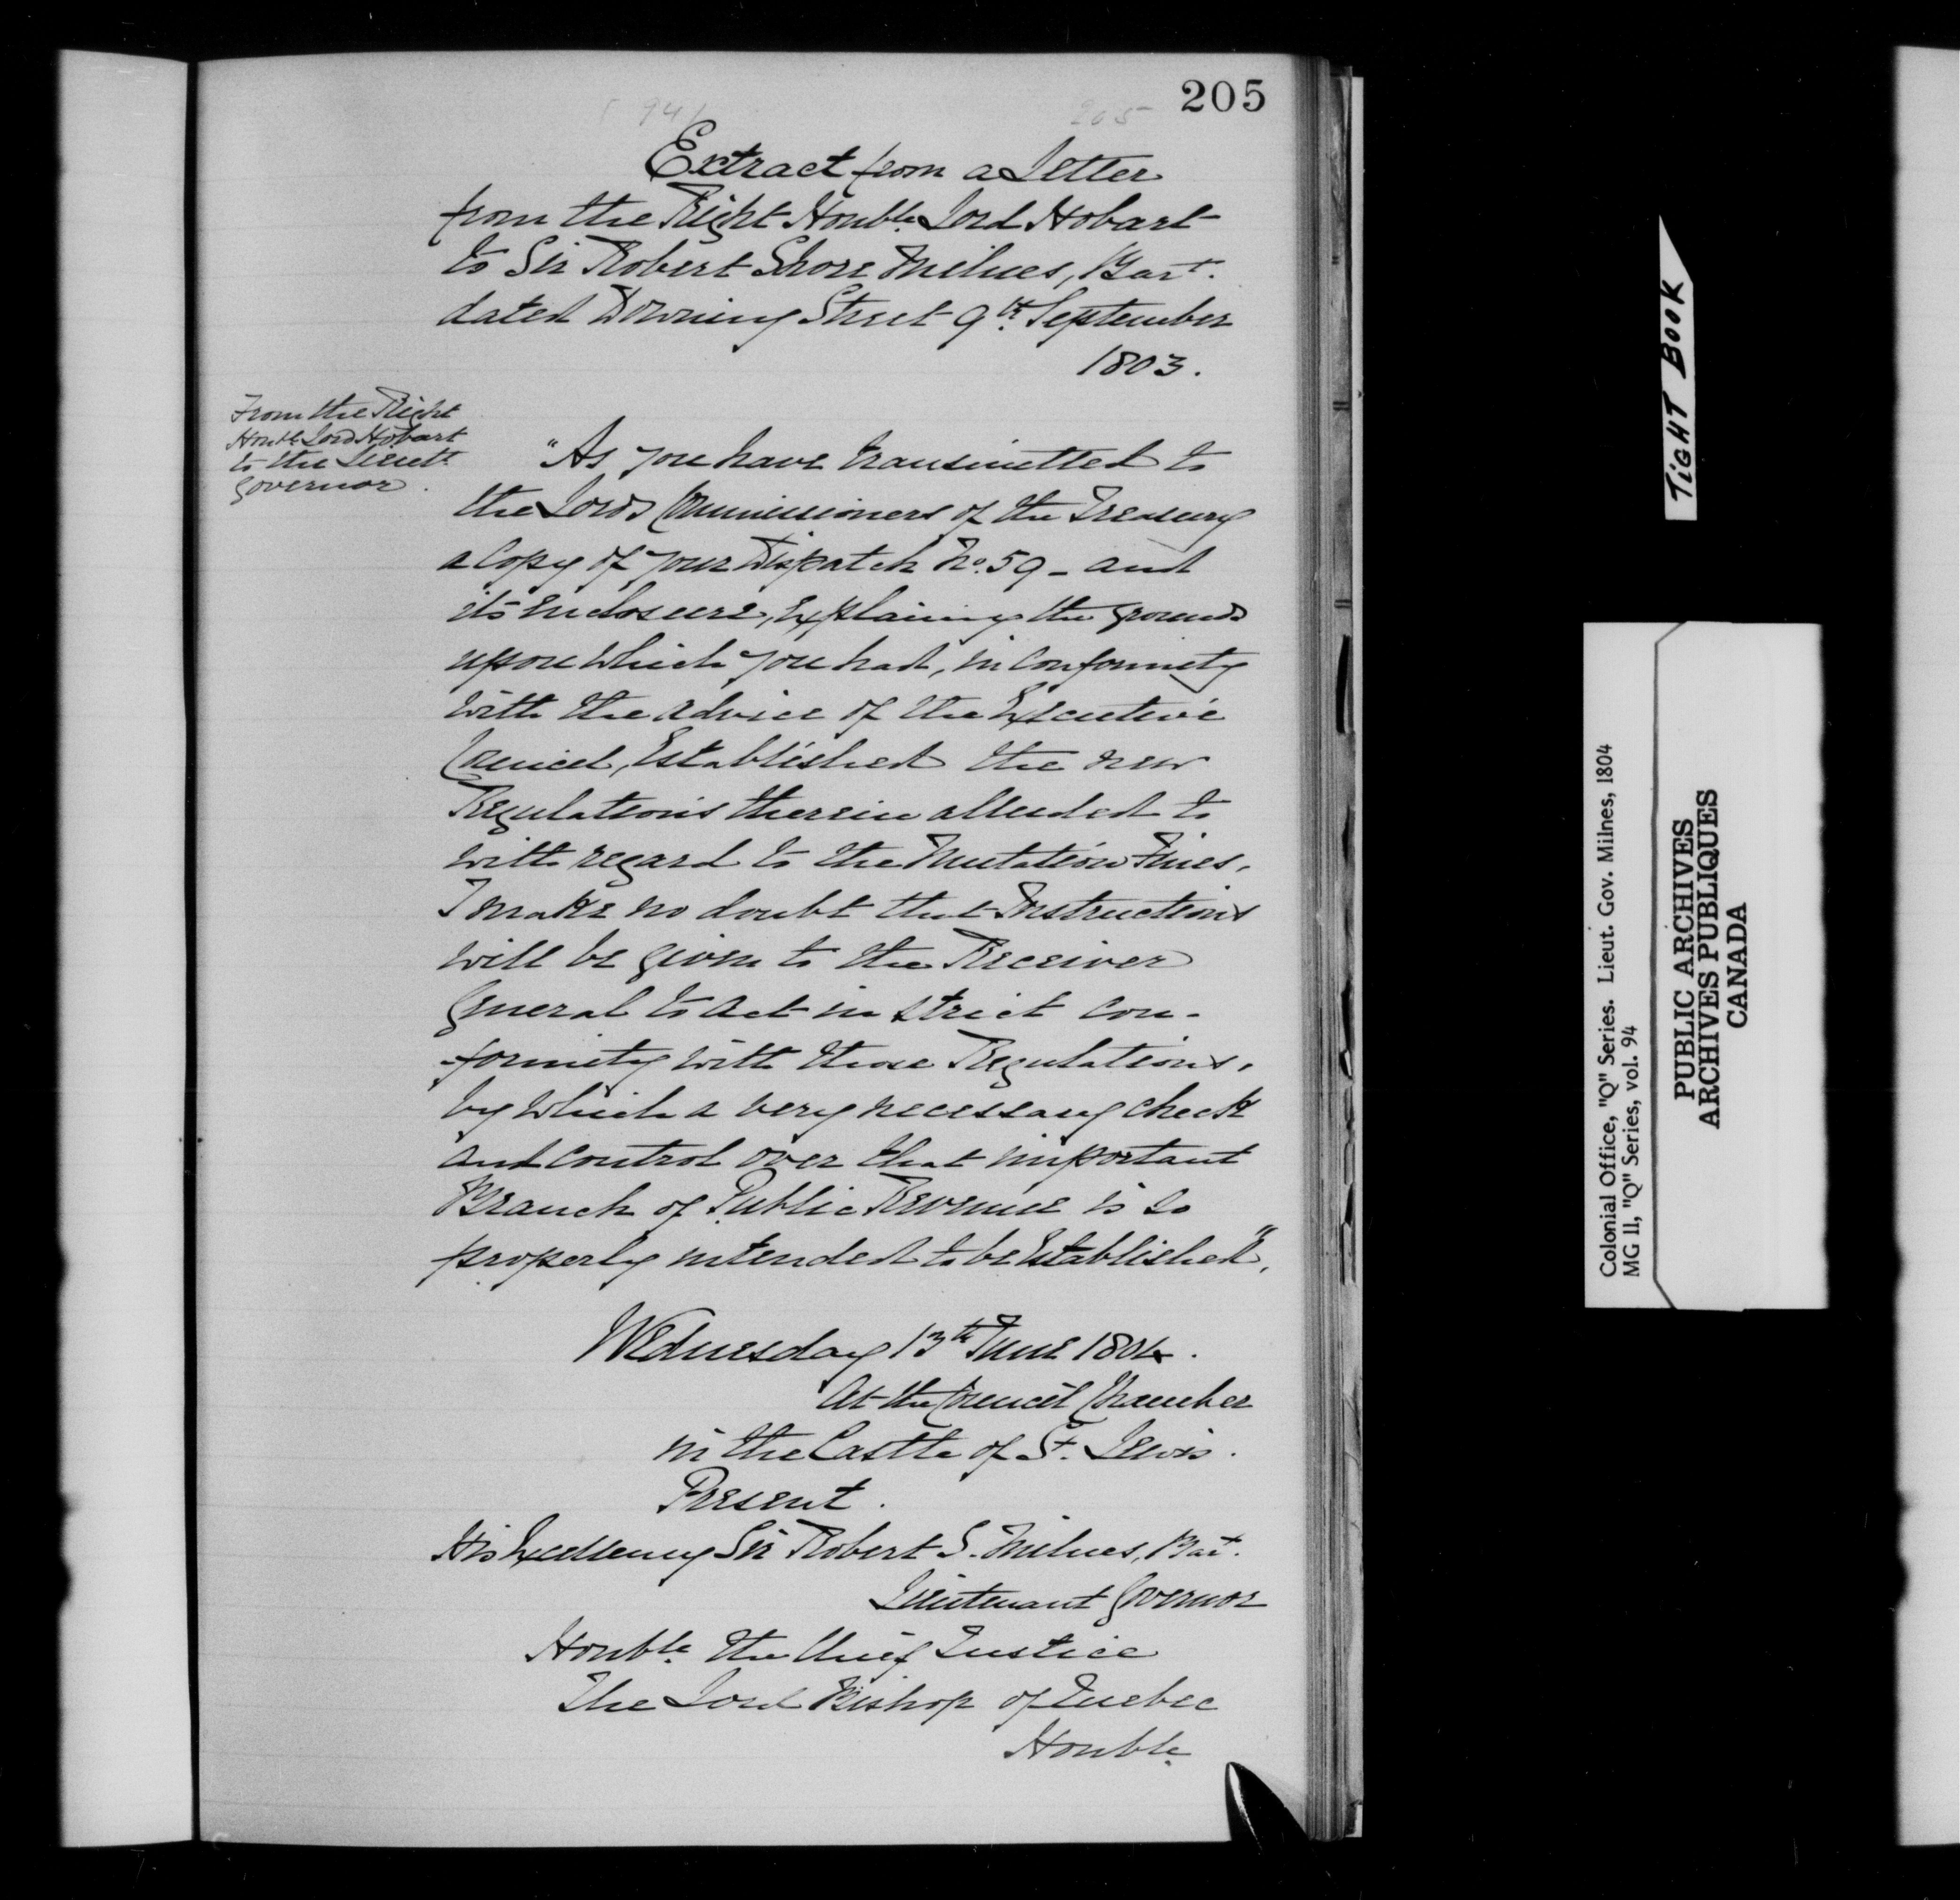 205
(94)
205
Extract from a Letter
from the Right Honble. Lord Hobart
to Sir Robert Shore Milnes, Bart.
dated Downing Street 9th. September
1803.
From the Right
Honble. Lord Hobart
to the Lieutt.
Governor.
"As you have transmitted to
the Lords Commissioners of the Treasury
a Copy of your Dispatch No. 59 - and
its enclosure, explaining the grounds
upon which you had, in conformity
with the advice of the Executive
Council, Established the new
Regulations therein alluded to
with regard to the Mutation Fines,
I make no doubt that Instructions
will be given to the Receiver
General to act in strict con-
-formity with those Regulations,
by which a very necessary check
and control over that important
Branch of Public Revenue is so
properly intended to be Established".
Wednesday 13th June 1804.
At the Council Chamber
in the Castle of St. Lewis.
Present.
His Excellency Sir Robert S. Milnes, Bart.
Lieutenant Governor
Honble. the Chief Justice
The Lord Bishop of Quebec
Honble.
TIGHT BOOK
Colonial Office, "Q" Series. Lieut. Gov. Milnes, 1804
MG 11, "Q" Series, vol. 94
PUBLIC ARCHIVES
ARCHIVES PUBLIQUES
CANADA